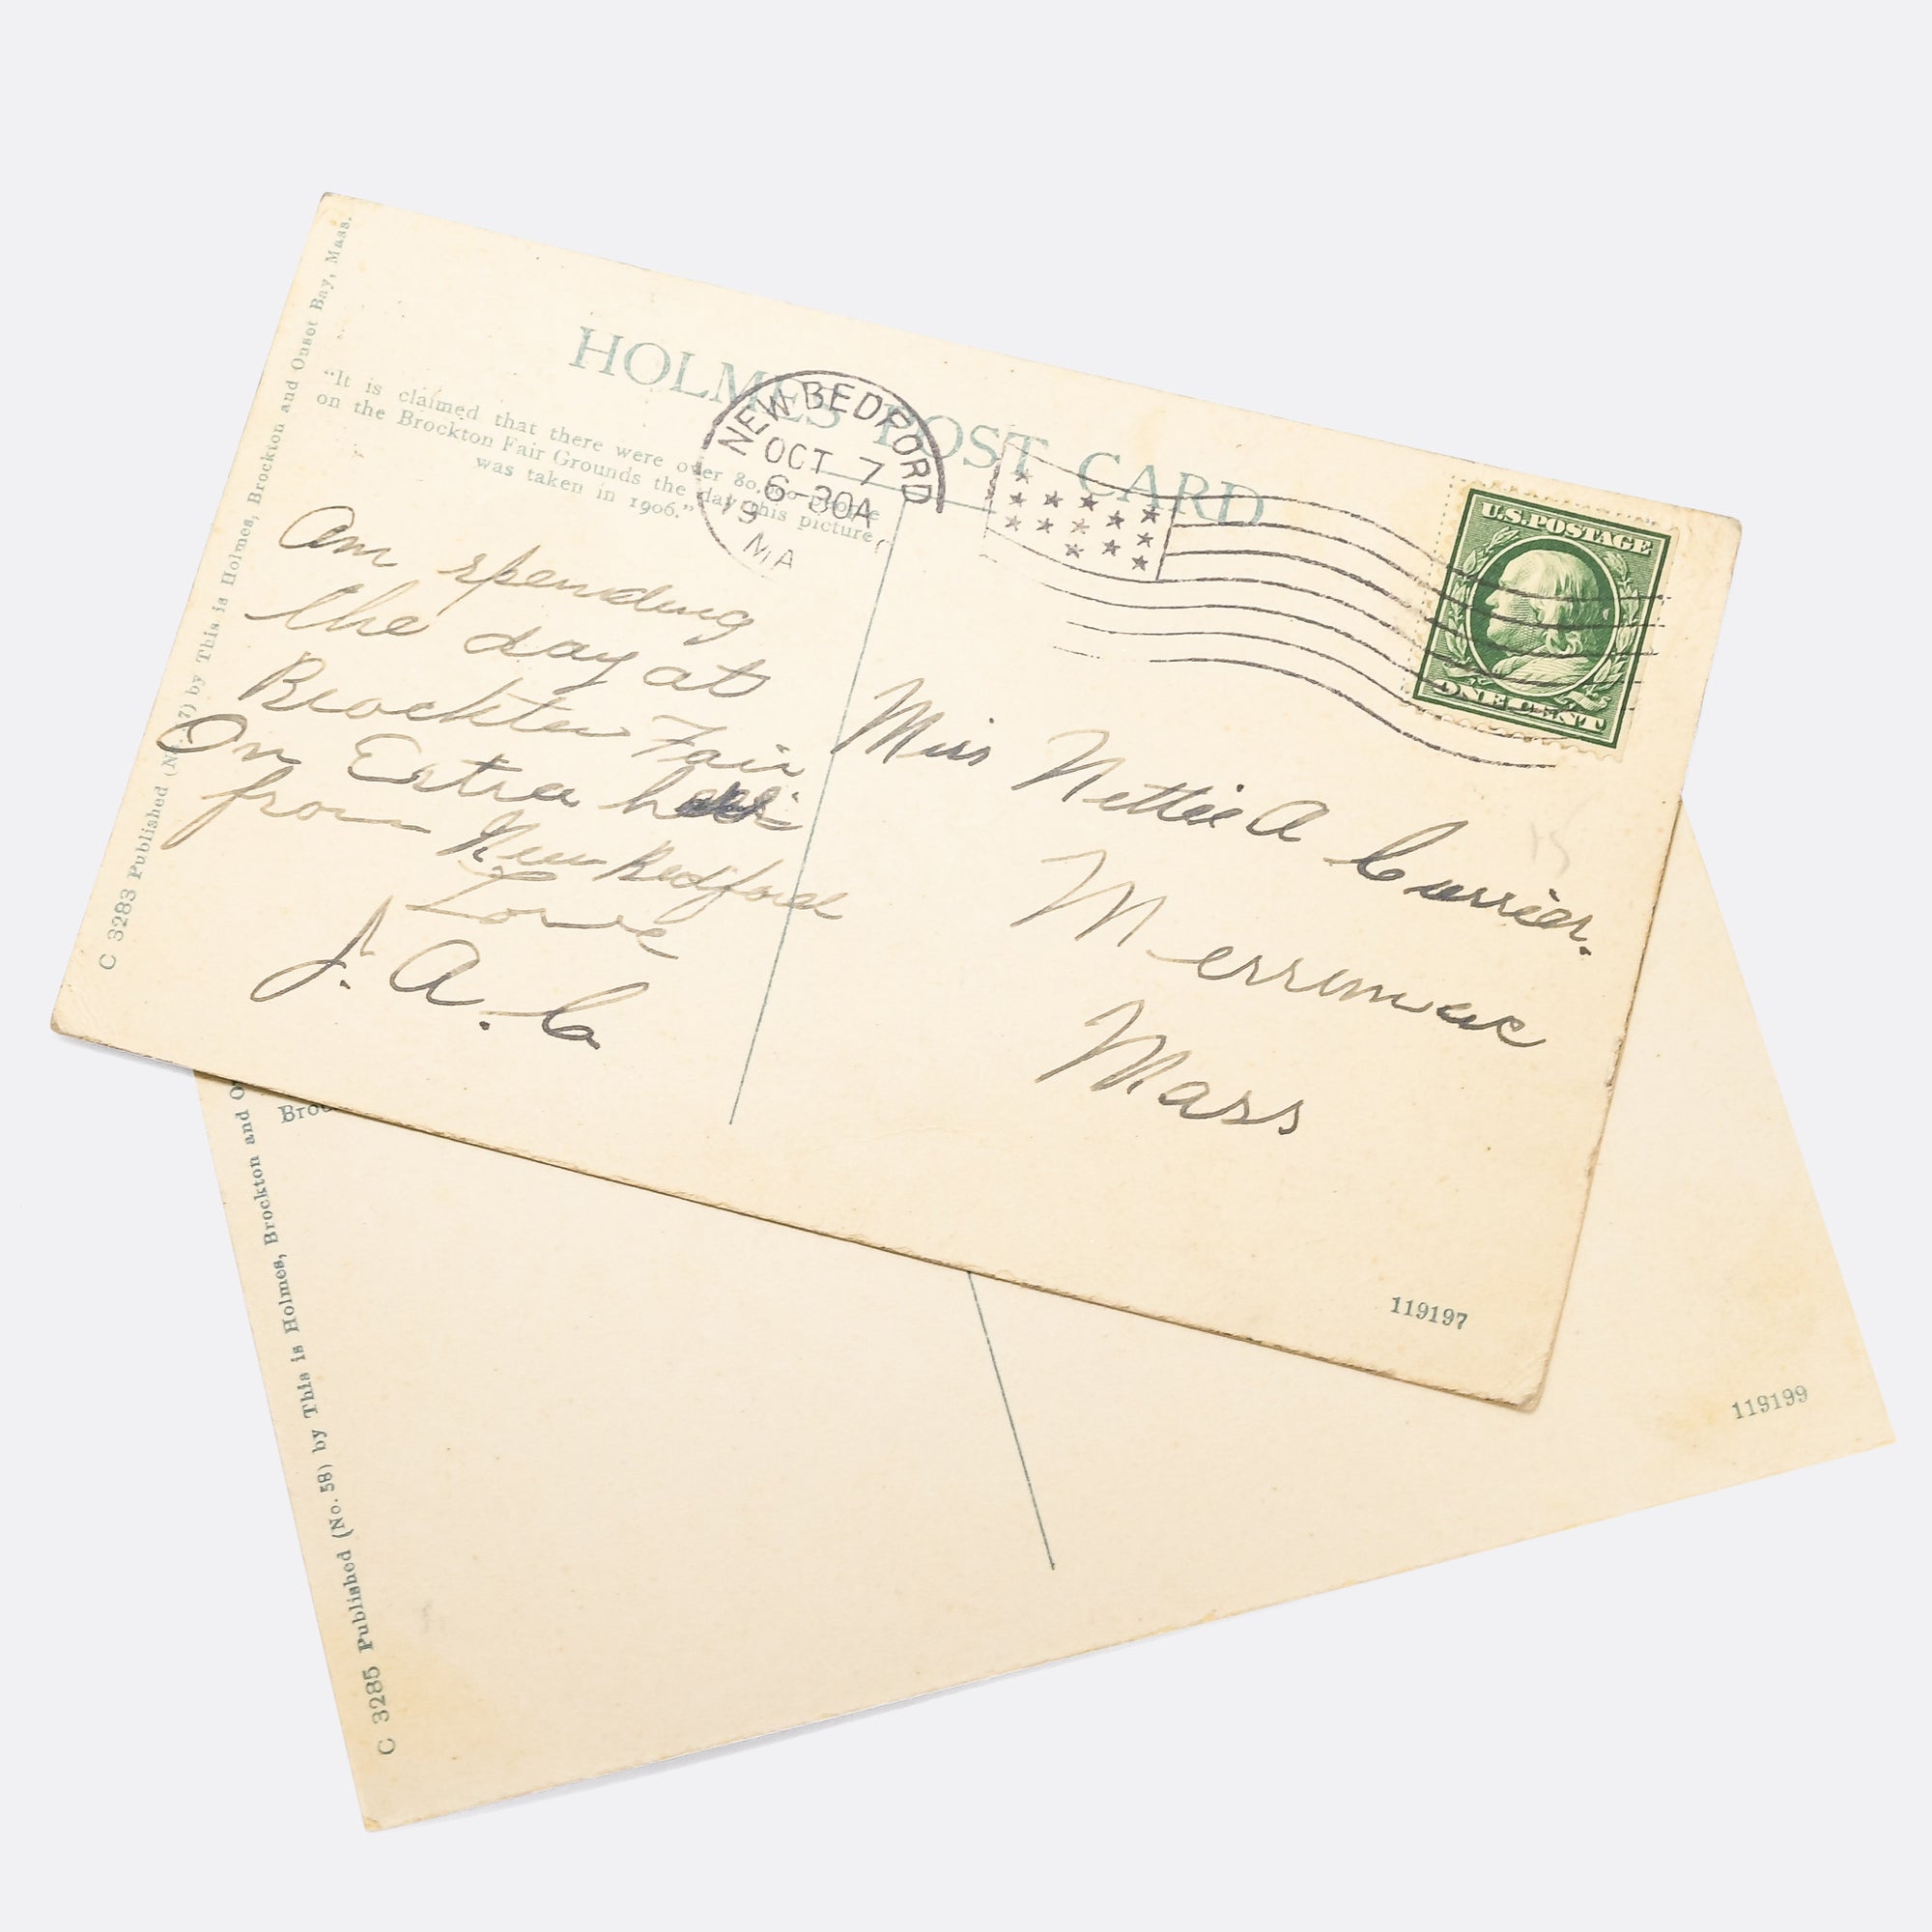 C 3283 Published (No. 7) by This is Holmes, Brockton and Onset Bay, Mass.
HOLMES POST CARD
"It is claimed that there were over 80,000 people
on the Brockton Fair Grounds the day this picture
was taken in 1906."
NEW BEDFORD
OCT 7
6-30A
19
MA
U.S. POSTAGE
ONE CENT
Am spending
the day at
Brockton Fair
On Extra
from New Bedford
Love
J. A. C
Miss Nettie A Currier.
Merrimac
Mass
119197
C 3285 Published (No. 58) by This is Holmes, Brockton and O
Broc
119199